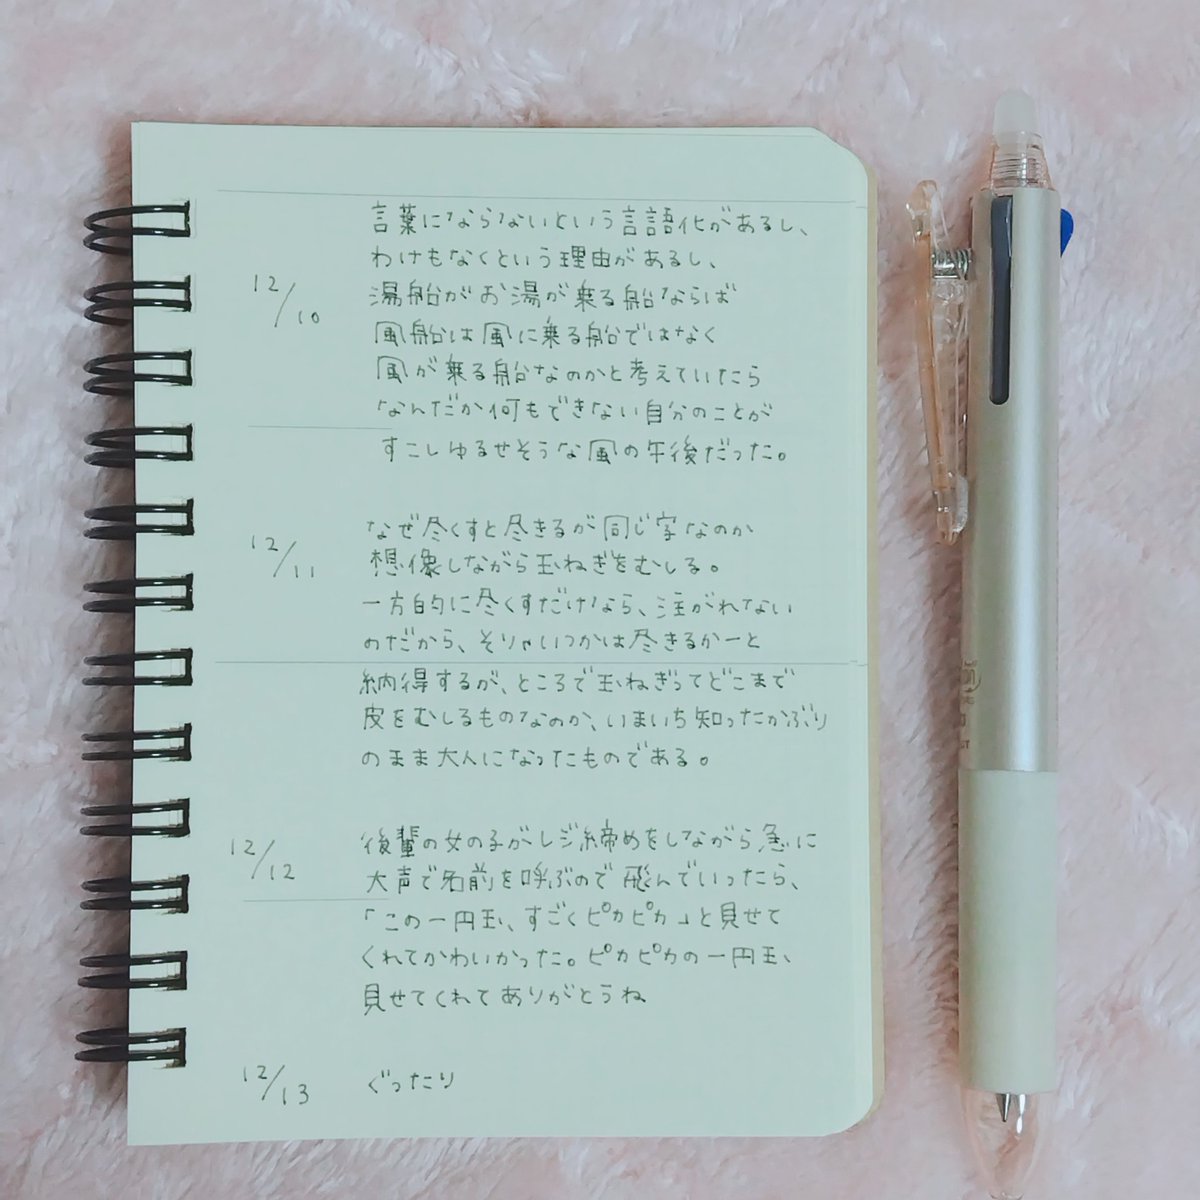 言葉にならないという言語化があるし、
わけもなくという理由があるし、
12/10
湯船がお湯が乗る船ならば
風船は風に乗る船ではなく
風が乗る船なのかと考えていたら
なんだか何もできない自分のことが
すこしゆるせそうな風の午後だった。
12/11
なぜ尽くすと尽きるが同じ字なのか
想像しながら玉ねぎをむしる。
一方的に尽くすだけなら、注がれない
のだから、そりゃいつかは尽きるかーと
納得するが、ところで玉ねぎってどこまで
皮をむしるものなのか、いまいち知ったかぶり
のまま大人になったものである。
12/12
後輩の女の子がレジ締めをしながら急に
大声で名前を呼ぶので飛んでいったら、
「この一円玉、すごくピカピカ」と見せて
くれてかわいかった。ピカピカの一円玉、
見せてくれてありがとうね
12/13
ぐったり